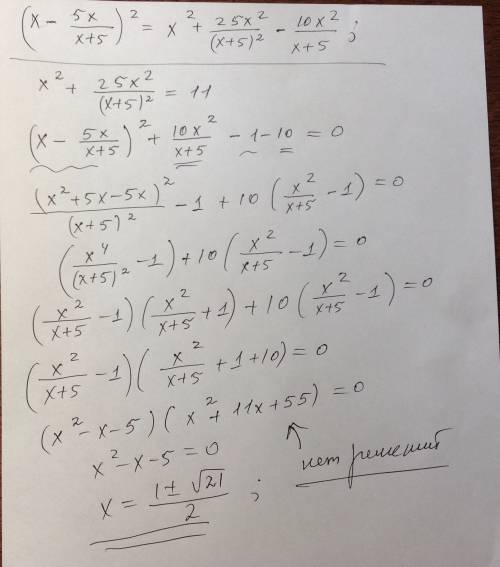 (x - 5x/(x+5))² = x² + 25x²/(x+5)² - 10x²/(x+5) ;
x² + 25x²/(x+5)² = 11
(x - 5x/(x+5))² + 10x²/(x+5) - 1 - 10 = 0
(x²+5x-5x)²/(x+5)² - 1 + 10 (x²/(x+5) - 1) = 0
(x⁴/(x+5)² - 1) + 10 (x²/(x+5) - 1) = 0
(x²/(x+5) - 1) (x²/(x+5) + 1) + 10 (x²/(x+5) - 1) = 0
(x²/(x+5) - 1) (x²/(x+5) + 1 + 10) = 0
(x² - x - 5) (x² + 11x + 55) = 0
x² - x - 5 = 0
нет решений
x = (1 ± √21)/2 ;